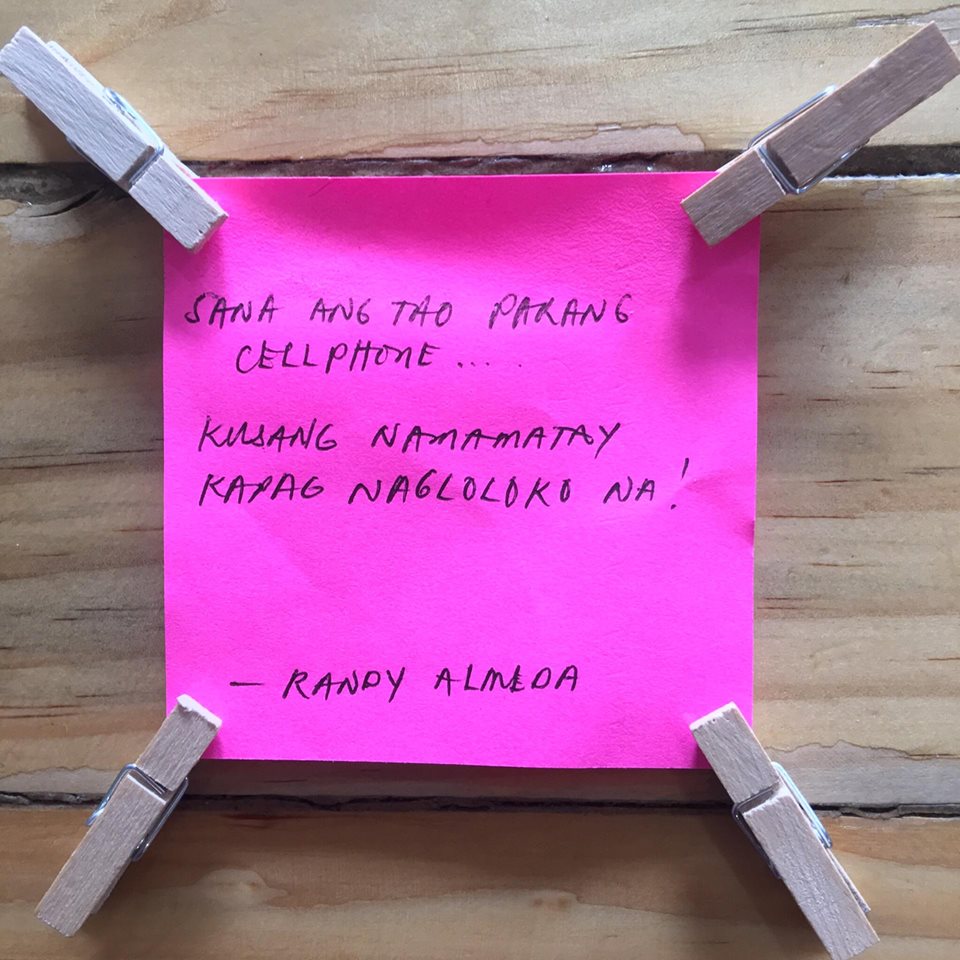 SANA ANG TAO PARANG
CELLPHONE .....
KUSANG NAMAMATAY
KAPAG NAGLOLOKO NA!
— RANDY ALMEDA